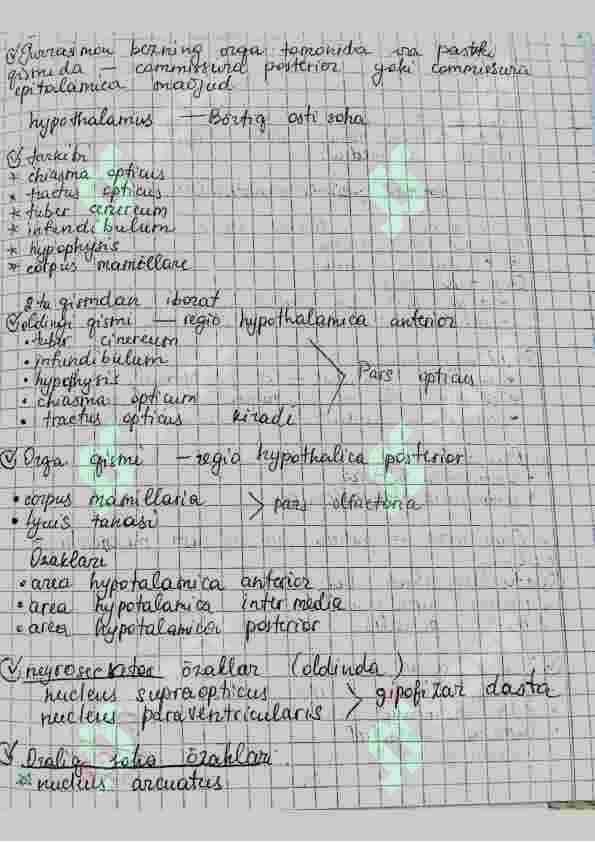 Gurrasimon bezning orga tomonida va pastki
qismida — commissura posterior yoki commissura
epitalamica mavjud
hypothalamus — Bo'rtiq osti soha
tarkibi
* chiasma opticus
* tractus opticus
* tuber cinereum
* infundibulum
* hypophysis
* corpus mamillare
2 ta qismdan iborat
oldingi qismi — regio hypothalamica anterior
• tuber cinereum
• infundibulum
• hypophysis
• chiasma opticum
• tractus opticus kiradi
Pars opticus
Orqa qismi — regio hypothalica posterior
• corpus mamillaria
• Lyuis tanasi
pars olfactoria
Özaklari
• area hypotalamica anterior
• area hypotalamica intermedia
• area hypotalamica posterior
neyrosekretor özaklar (oldinda)
nucleus supraopticus
nucleus paraventricularis
gipofizar dasta
Oraliq soha özaklari
* nucleus arcuatus